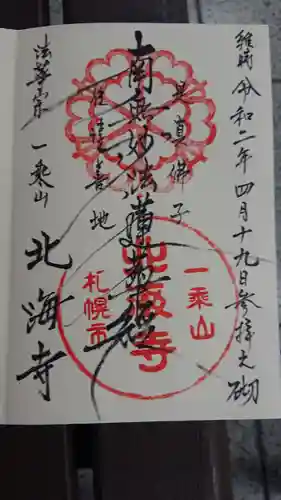 維時 令和二年四月十九日参拝之砌
是真佛子
南無妙法蓮華経
住淳善地
法華宗 一乗山
北海寺
一乗山
北海寺
札幌市